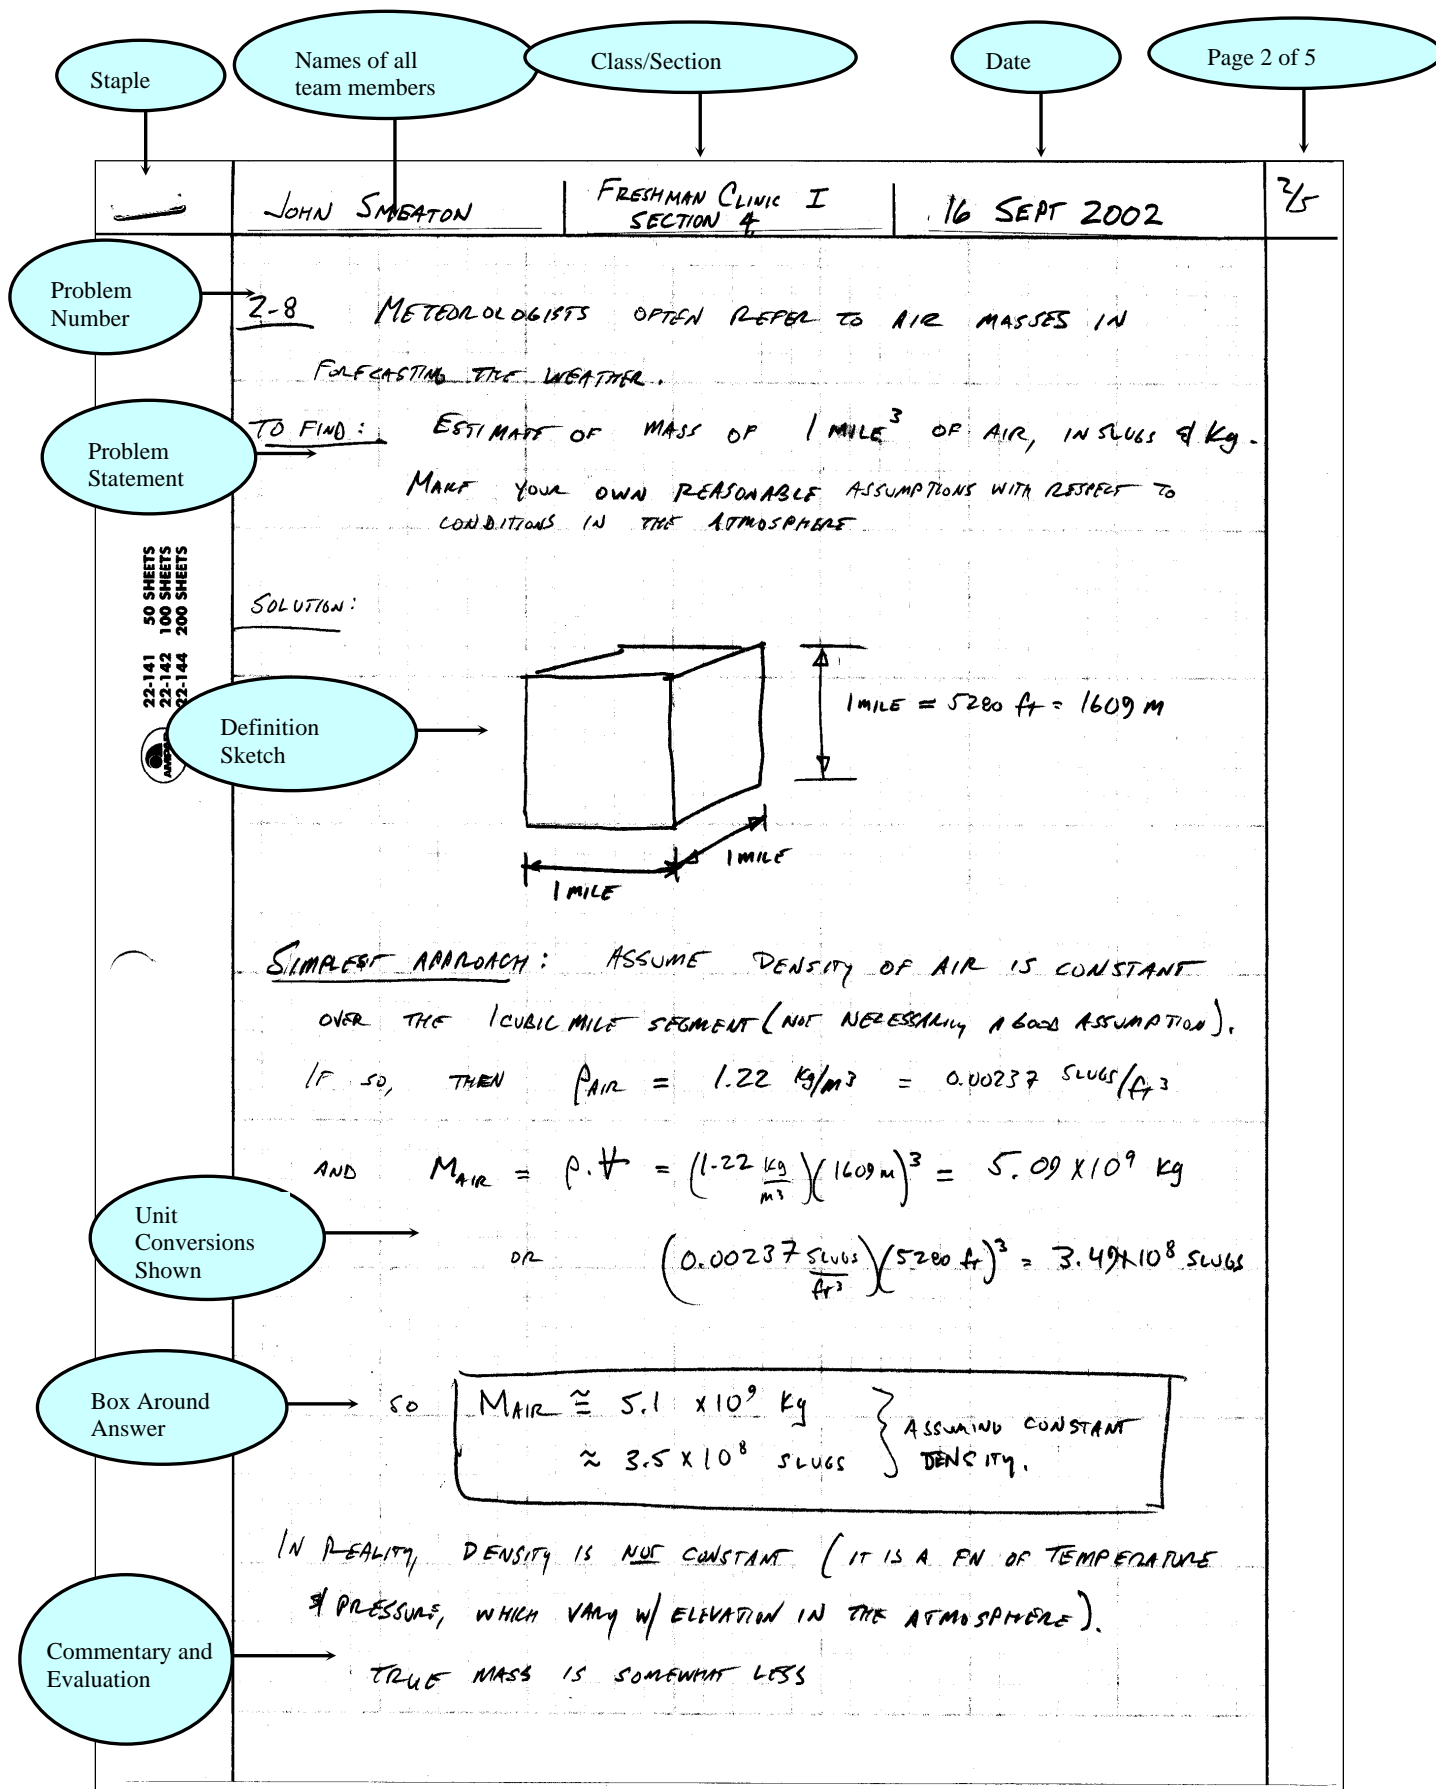 Staple
Names of all
team members
Class/Section
Date
Page 2 of 5
JOHN SMEATON
FRESHMAN CLINIC I
SECTION 4
16 SEPT 2002
2/5
Problem
Number
2-8 METEOROLOGISTS OFTEN REFER TO AIR MASSES IN
FORECASTING THE WEATHER.
Problem
Statement
TO FIND: ESTIMATE OF MASS OF 1 MILE³ OF AIR, IN SLUGS & Kg.
MAKE YOUR OWN REASONABLE ASSUMPTIONS WITH RESPECT TO
CONDITIONS IN THE ATMOSPHERE
22-141 50 SHEETS
22-142 100 SHEETS
22-144 200 SHEETS
SOLUTION:
Definition
Sketch
1 MILE = 5280 ft = 1609 m
1 MILE
1 MILE
SIMPLEST APPROACH: ASSUME DENSITY OF AIR IS CONSTANT
OVER THE 1 CUBIC MILE SEGMENT (NOT NECESSARILY A GOOD ASSUMPTION).
IF SO, THEN ρAIR = 1.22 Kg/m³ = 0.00237 SLUGS/ft³
AND MAIR = ρ.V = (1.22 kg/m³)(1609 m)³ = 5.09 X 10⁹ Kg
Unit
Conversions
Shown
OR (0.00237 SLUGS/ft³)(5280 ft)³ = 3.49 X 10⁸ SLUGS
Box Around
Answer
SO MAIR ≅ 5.1 X 10⁹ Kg
≈ 3.5 X 10⁸ SLUGS } ASSUMING CONSTANT
DENSITY.
IN REALITY, DENSITY IS NOT CONSTANT (IT IS A FN OF TEMPERATURE
& PRESSURE, WHICH VARY W/ ELEVATION IN THE ATMOSPHERE).
Commentary and
Evaluation
TRUE MASS IS SOMEWHAT LESS